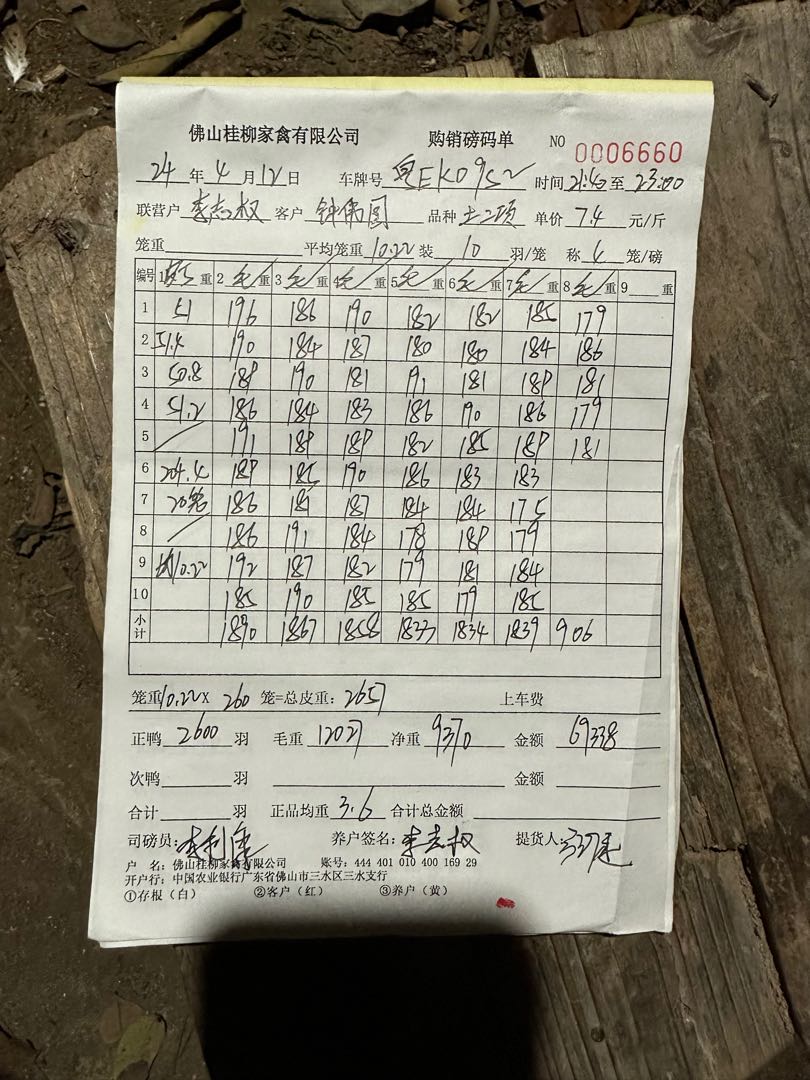 佛山桂柳家禽有限公司 购销磅码单 NO 0006660
24 年 4 月 12 日 车牌号 粤EK0952 时间 21:40 至 23:00
联营户 李志权 客户 钟伟圆 品种 土二项 单价 7.4 元/斤
笼重 平均笼重 10.22 装 10 羽/笼 称 4 笼/磅
编号 1 重 2 毛 重 3 毛 重 4 毛 重 5 毛 重 6 毛 重 7 毛 重 8 毛 重 9 重
1 51 196 186 190 182 182 185 179
2 51.4 190 184 187 180 180 184 186
3 50.8 188 190 181 191 181 188 181
4 51.2 186 184 183 186 190 186 179
5 191 188 188 182 185 188 181
6 204.4 188 185 190 186 183 183
7 20笼 186 181 187 184 184 175
8 186 191 184 178 188 179
9 均10.22 192 187 182 179 181 184
10 185 190 185 185 179 185
小计 1890 1867 1858 1833 1834 1839 906
笼重 10.22 X 260 笼=总皮重: 2657 上车费
正鸭 2600 羽 毛重 12027 净重 9370 金额 69338
次鸭 羽 金额
合计 羽 正品均重 3.6 合计总金额
司磅员: 养户签名: 李志权 提货人:
户 名: 佛山桂柳家禽有限公司 账号: 444 401 010 400 169 29
开户行: 中国农业银行广东省佛山市三水区三水支行
①存根(白) ②客户(红) ③养户(黄)